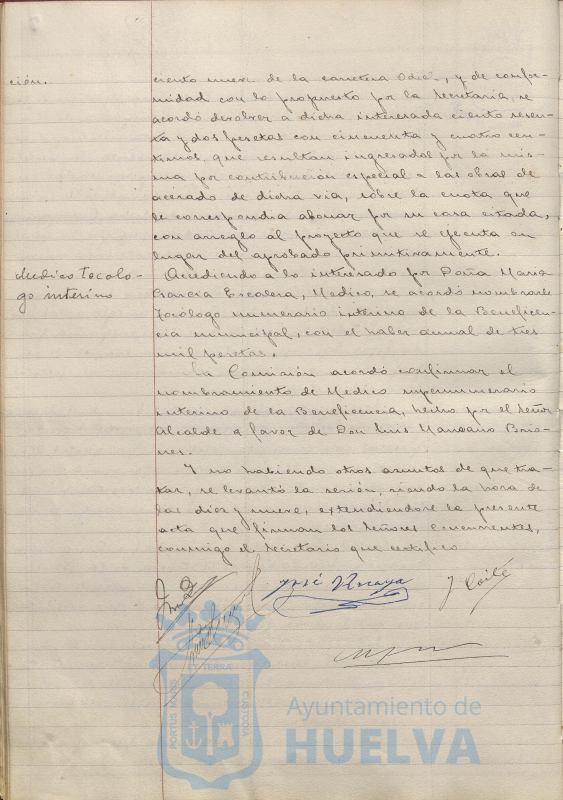 ción.
ciento nueve de la carretera Odiel, y de confor-
midad con lo propuesto por la Secretaría, se
acordó devolver a dicha interesada ciento sesen-
ta y dos pesetas con cincuenta y cuatro cen-
timos que resultan ingresados por la mis-
ma por contribución especial a las obras de
acerado de dicha via, sobre la cuota que
le correspondia abonar por su casa citada,
con arreglo al proyecto que se ejecuta en
lugar del aprobado primitivamente.
Medico Tocolo-
go interino
Accediendo a lo interesado por Doña Maria
Garcia Escalera, Medico, se acordó nombrarle
Tocólogo numerario interino de la Beneficen-
cia municipal, con el haber anual de tres
mil pesetas.
La Comisión acordó confirmar el
nombramiento de Medico supernumerario
interino de la Beneficencia, hecho por el Señor
Alcalde a favor de Don Luis Manzano Brio-
nes.
Y no habiendo otros asuntos de que tra-
tar, se levantó la sesión, siendo la hora de
las diez y nueve, extendiendose la presente
acta que firman los Señores concurrentes,
conmigo el Secretario que certifico
José
PORTUS MARIS
ET TERRÆ
CUSTODIA
Ayuntamiento de
HUELVA